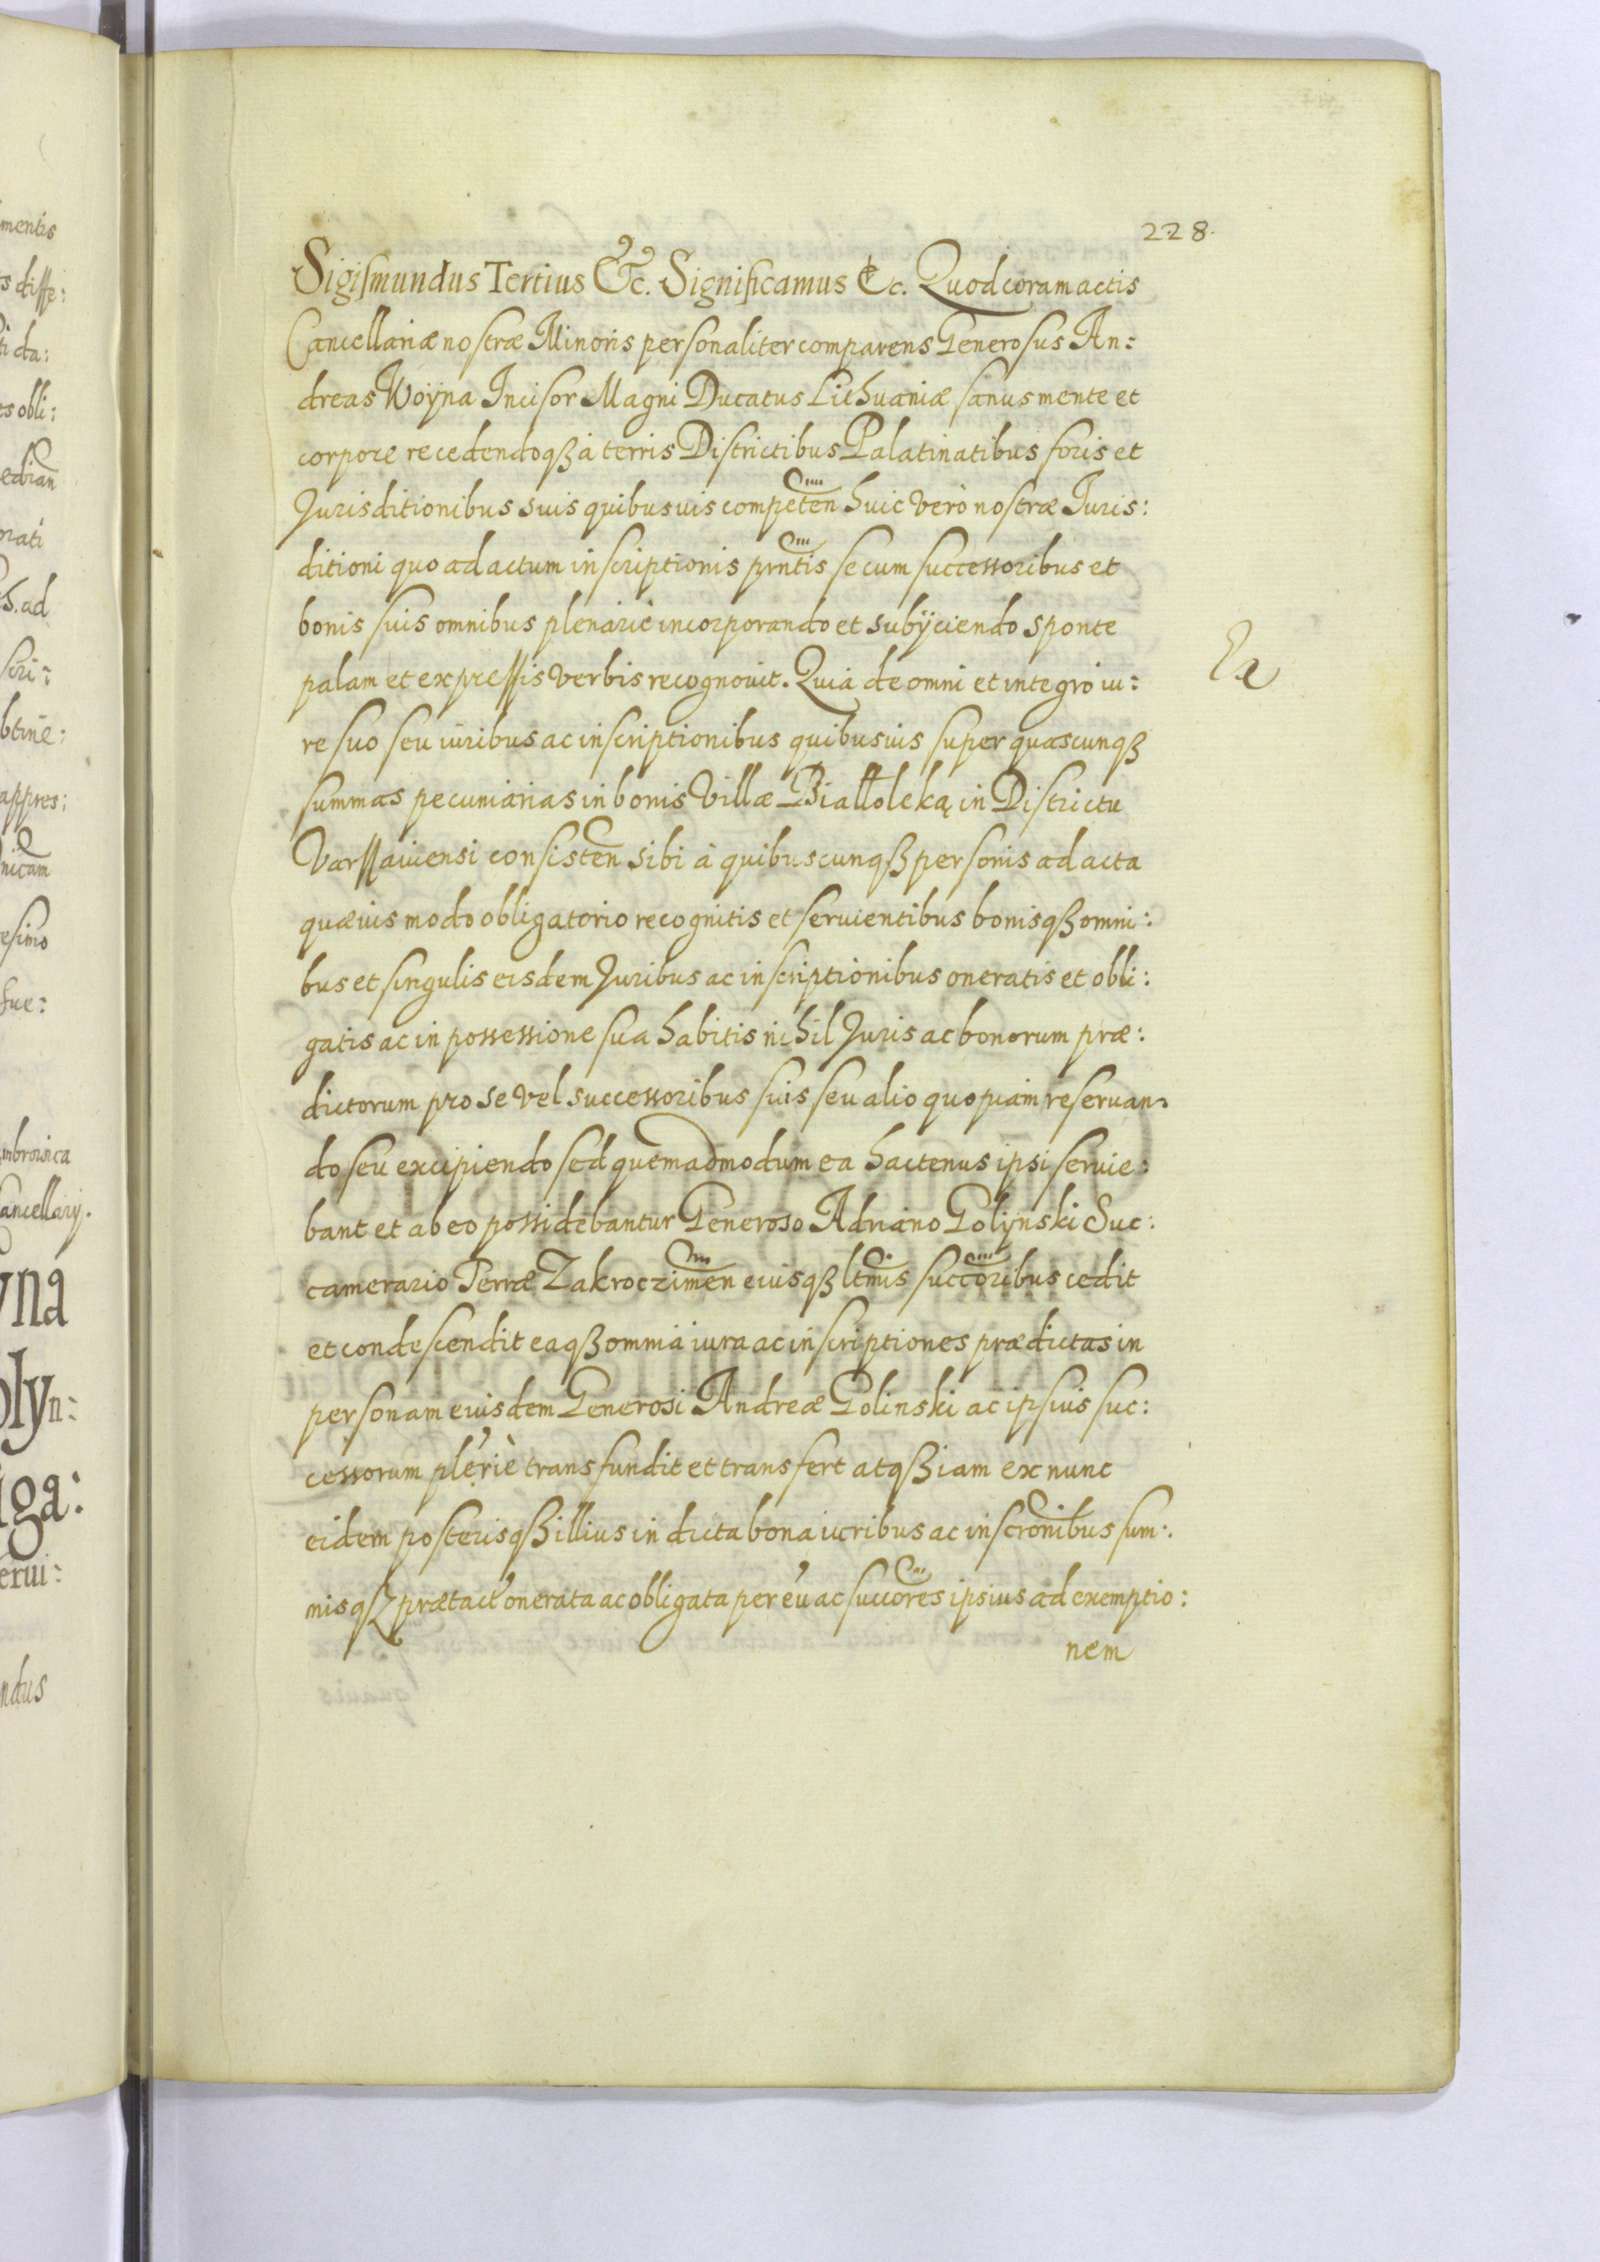 228.
Sigismundus Tertius &c. Significamus &c. Quod coram actis
Cancellariæ nostræ Minoris personaliter comparens Generosus An:
dreas Woÿna Incisor Magni Ducatus Lithuaniæ sanus mente et
corpore recedendoqȝ à terris Districtibus Palatinatibus foris et
Jurisditionibus suis quibusuis competen̄ huic verò nostræ Juris:
ditioni quo ad actum inscriptionis pr̄ntis se cum successoribus et
bonis suis omnibus plenariè incorporando et subÿciendo sponte
palam et expressis verbis recognouit. Quia de omni et integro iu:
re suo seu iuribus ac inscriptionibus quibusuis super quascunqȝ
summas pecuniarias in bonis Villæ Białłoleką in Districtu
Varssauiensi consisten̄ sibi à quibuscunqȝ personis ad acta
quæuis modo obligatorio recognitis et seruientibus bonisqȝ omni:
bus et singulis eisdem Juribus ac inscriptionibus oneratis et obli:
gatis ac in possessione sua habitis nihil Juris ac bonorum præ:
dictorum pro se vel successoribus suis seu alio quopiam reseruan:
do seu excipiendo sed quemadmodum ea hactenus ipsi seruie:
bant et ab eo possidebantur Generoso Adriano Golÿnski Suc:
camerario Terræ Zakroczimen̄ eiusqȝ ltm̄is succ̄oribus cedit
et condescendit eaqȝ omnia iura ac inscriptiones prædictas in
personam eiusdem Generosi Andreæ Golinski ac ipsius suc:
cessorum ple'riè transfundit et transfert atqȝ iam ex nunc
eidem posterisqȝ illius in dicta bona iuribus ac inscr̄onibus sum:
misqȝ prætact' onerata ac obligata per eu' ac succ̄ores ipsius ad exemptio:
nem